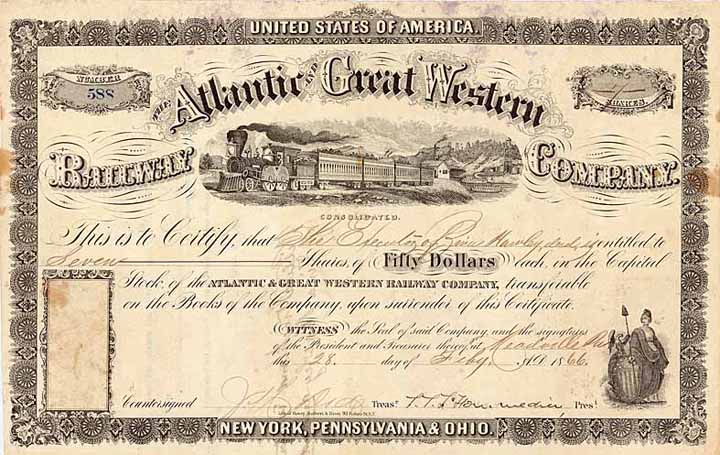 UNITED STATES OF AMERICA.
NUMBER
588
SHARES.
THE Atlantic AND Great Western
RAILWAY COMPANY.
CONSOLIDATED.
This is to Certify, that The Executor of Hawley decd, is entitled to
Seven Shares, of Fifty Dollars each, in the Capital
Stock, of the ATLANTIC & GREAT WESTERN RAILWAY COMPANY, transferable
on the Books of the Company, upon surrender of this Certificate.
WITNESS the Seal of said Company, and the signatures
of the President and Treasurer thereof, at Meadville
this 28 day of Feby. A.D. 1866.
Countersigned Treasr. Prest.
NEW YORK, PENNSYLVANIA & OHIO.